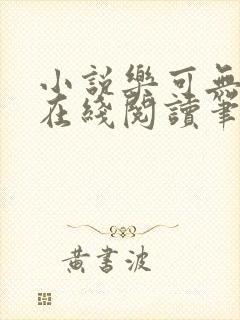 小説樂可無
在綫閱讀筆
黄書波